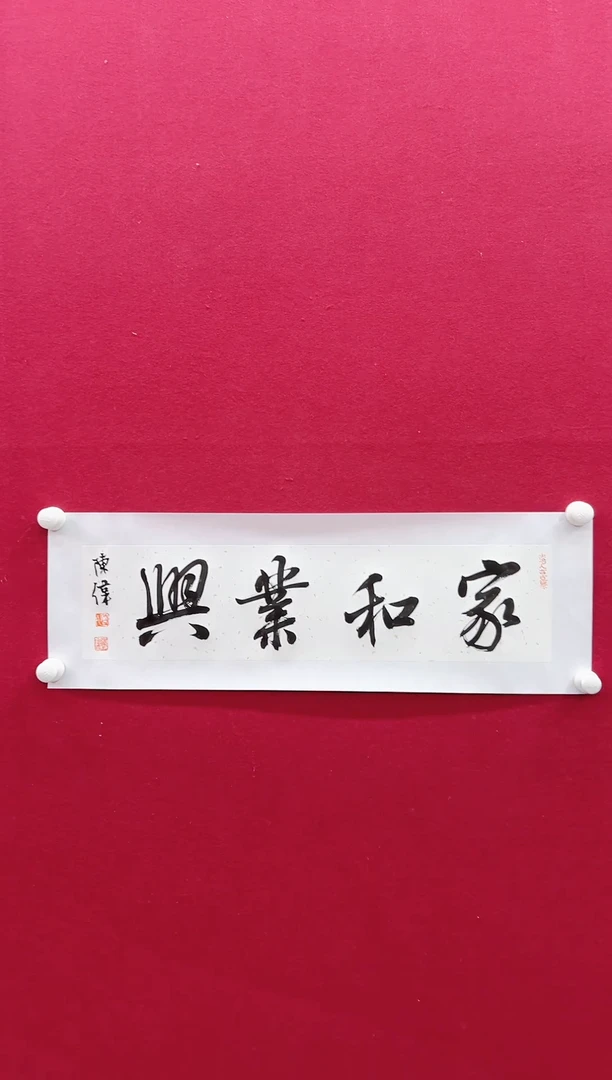 家和業興
陳偉